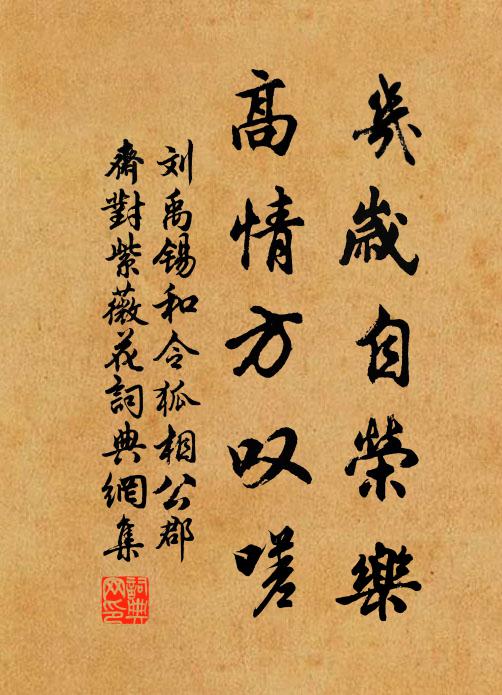 几岁自荣樂
高情方叹嗟
刘禹锡和令狐相公郡
齋對紫薇花詞典網集
詞典网印